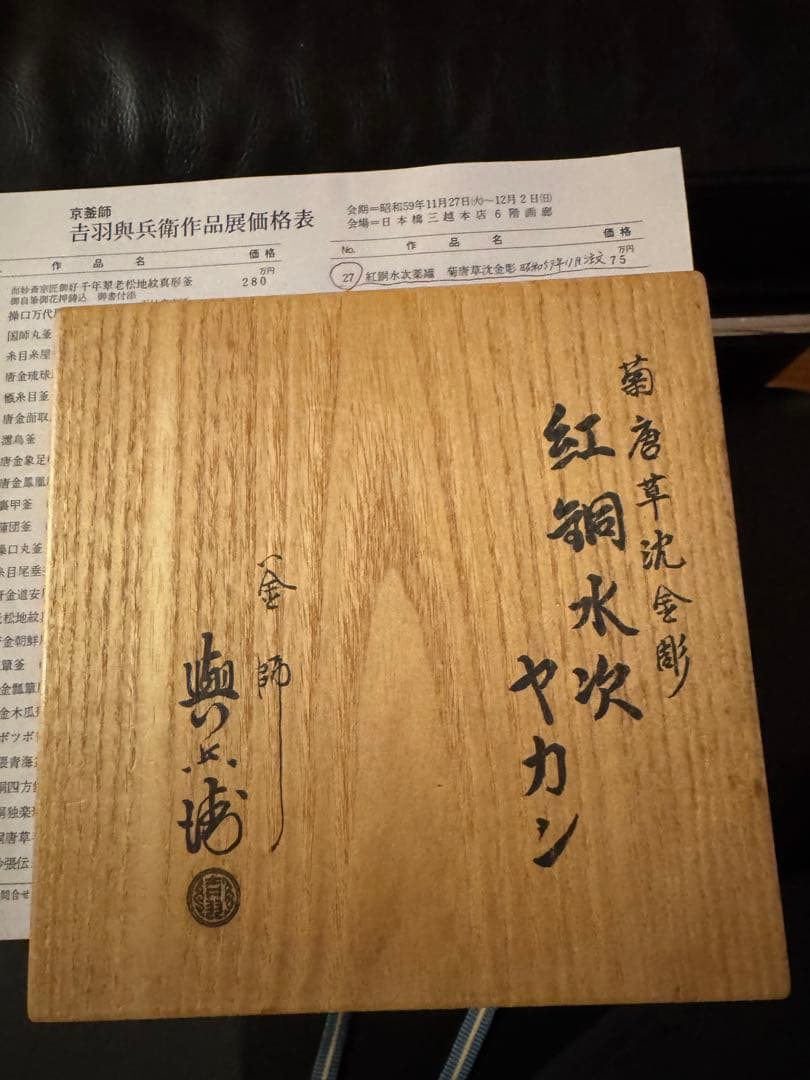 京釜師
吉羽與兵衛作品展価格表
会期=昭和59年11月27日(火)~12月2日(日)
会場=日本橋三越本店6階画廊
作品名
価格
万円
而妙斎宗匠御好千年翠老松地紋真形釜 280
御自筆御花押鋳込 御書付添
操口万代
国師丸釜
糸目糸屋
唐金琉球
甑糸目釜
唐金面取
濡烏釜
唐金象足
唐金鳳凰
裏甲釜
蒲団釜
操口丸釜
糸目尾垂
金道安
老松地紋真
金朝鮮
箪釜
金瓢箪
金木瓜
ボツボ
青海
四方
独楽
唐草
張伝
問合せ
No. 作品名 価格
万円
27 紅銅水次薬鑵 菊唐草沈金彫 昭和59年11月注文 75
菊唐草沈金彫
紅銅水次
ヤカン
釜師
與兵衛
吉羽